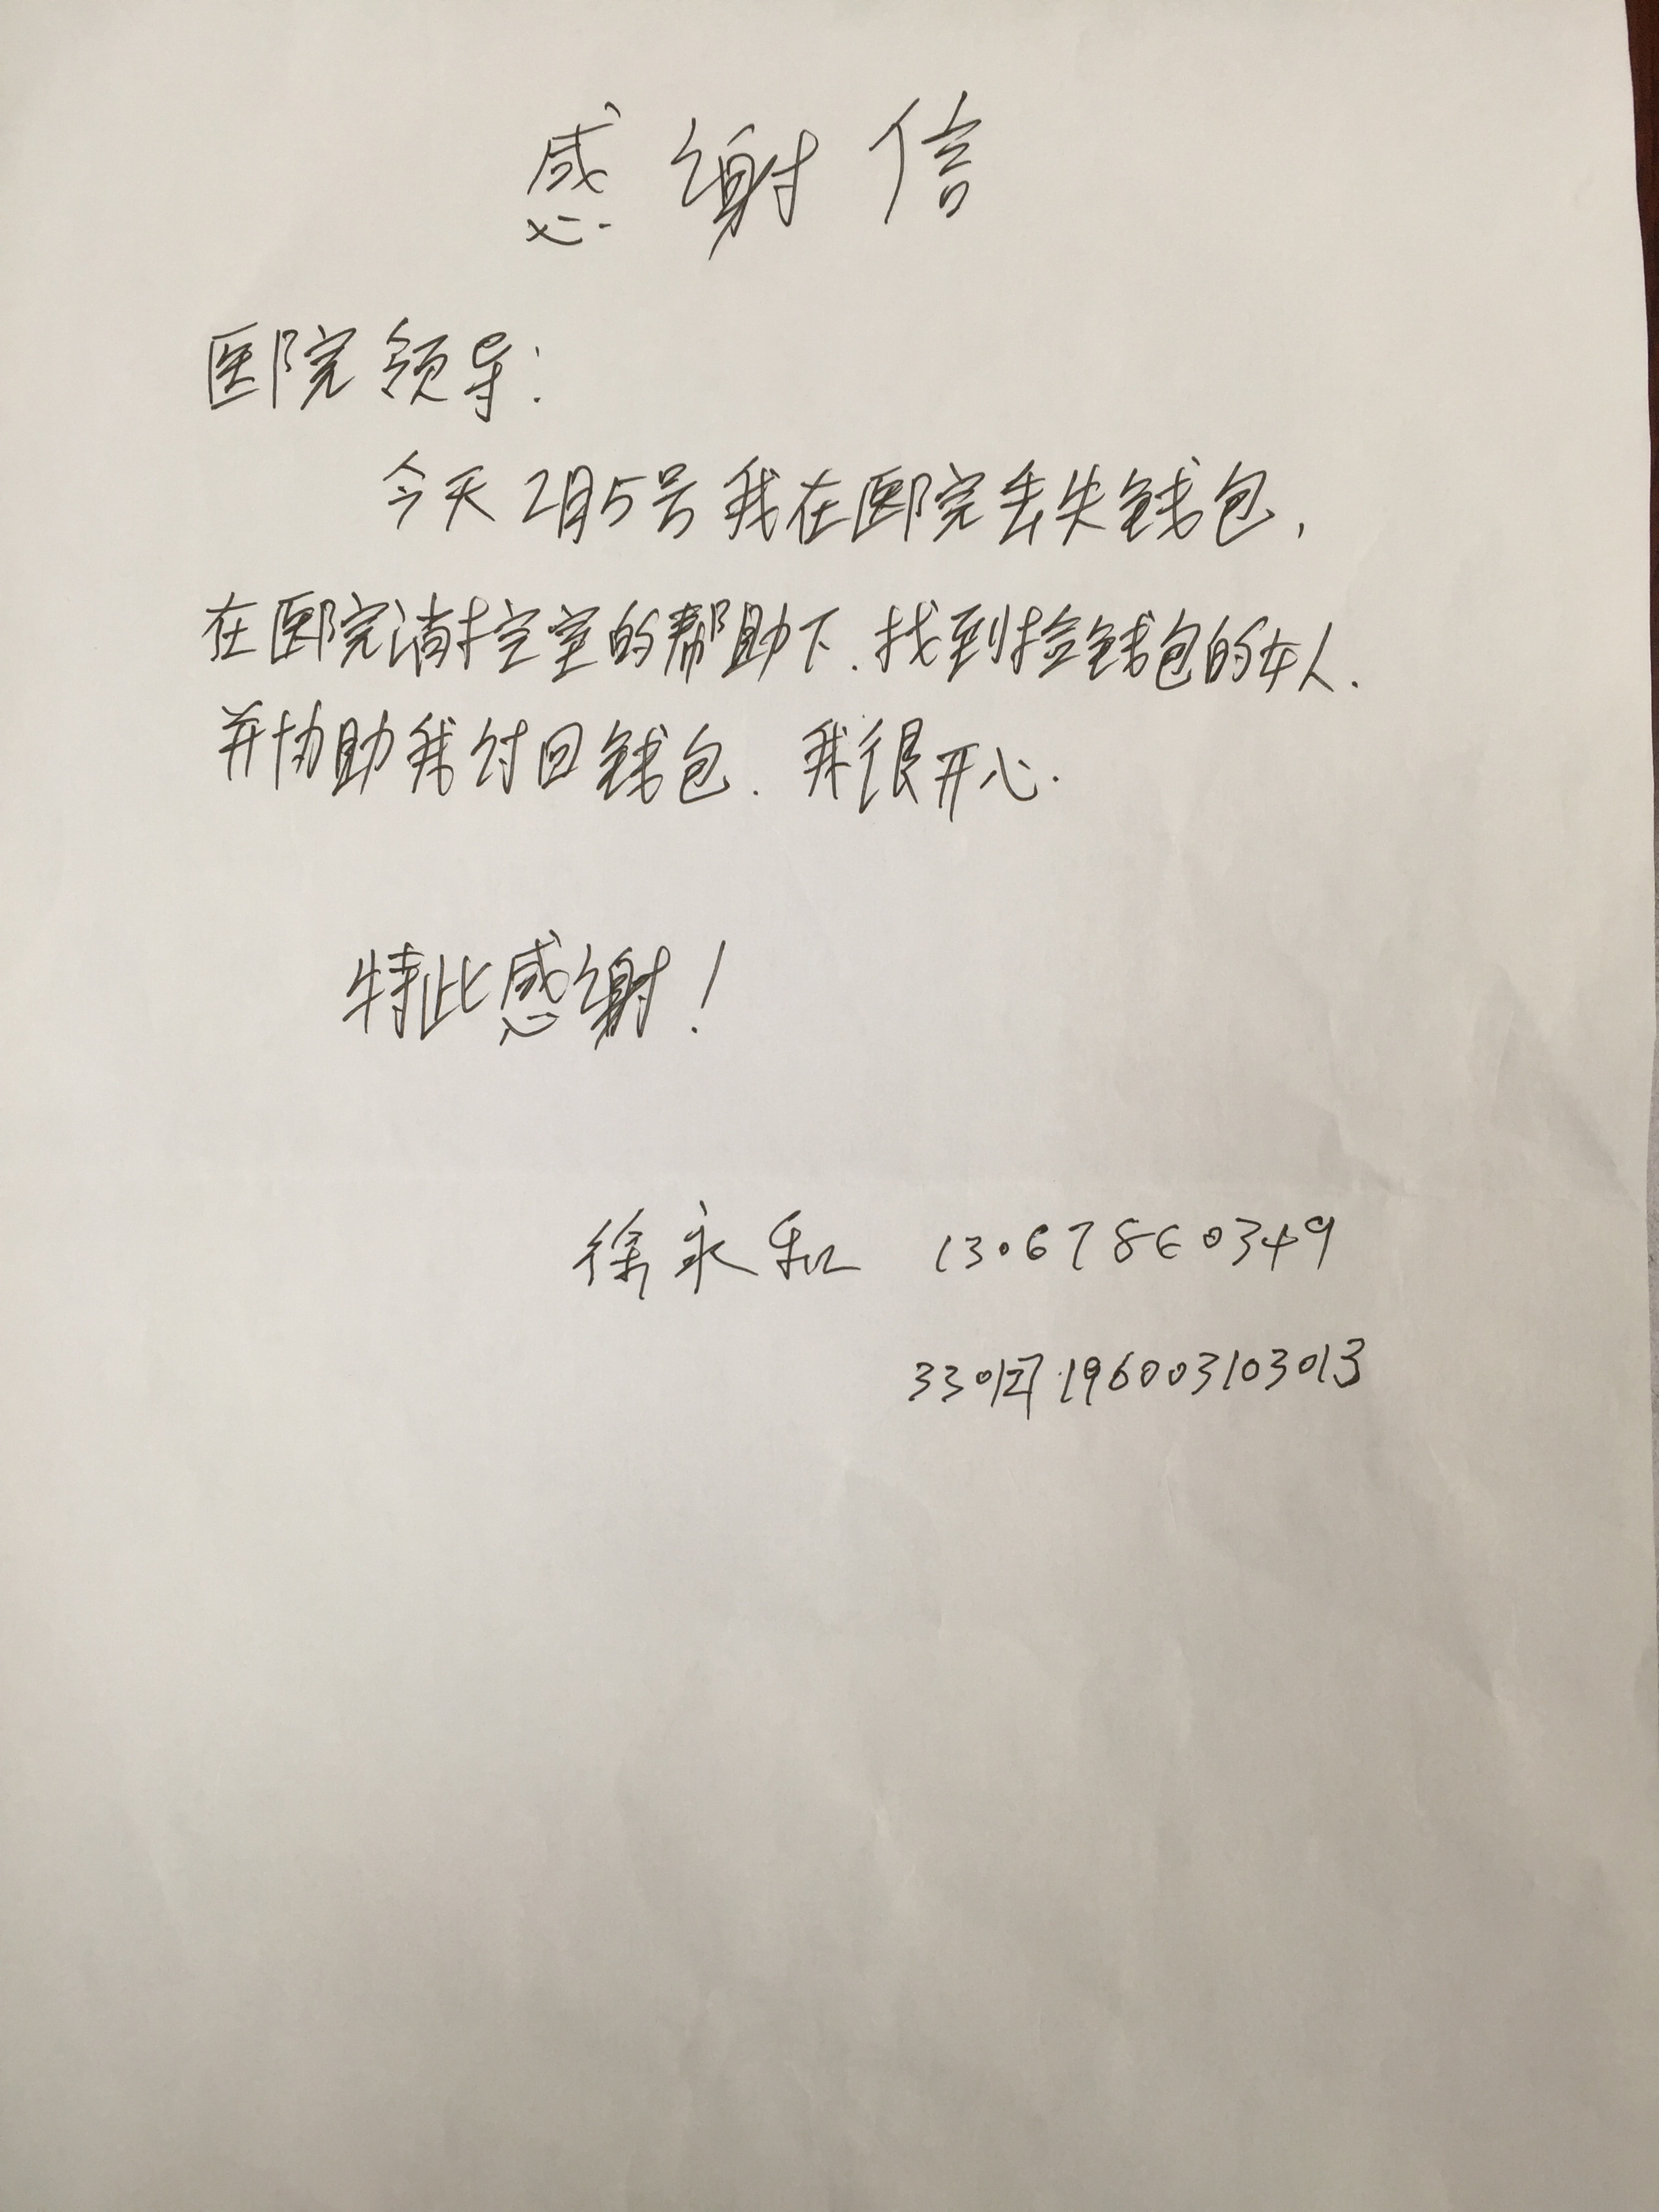 感谢信
医院领导：
今天2月5号我在医院丢失钱包，
在医院消控室的帮助下．找到捡钱包的女人．
并协助我付回钱包．我很开心．
特此感谢！
徐永和 13067860349
196003103013